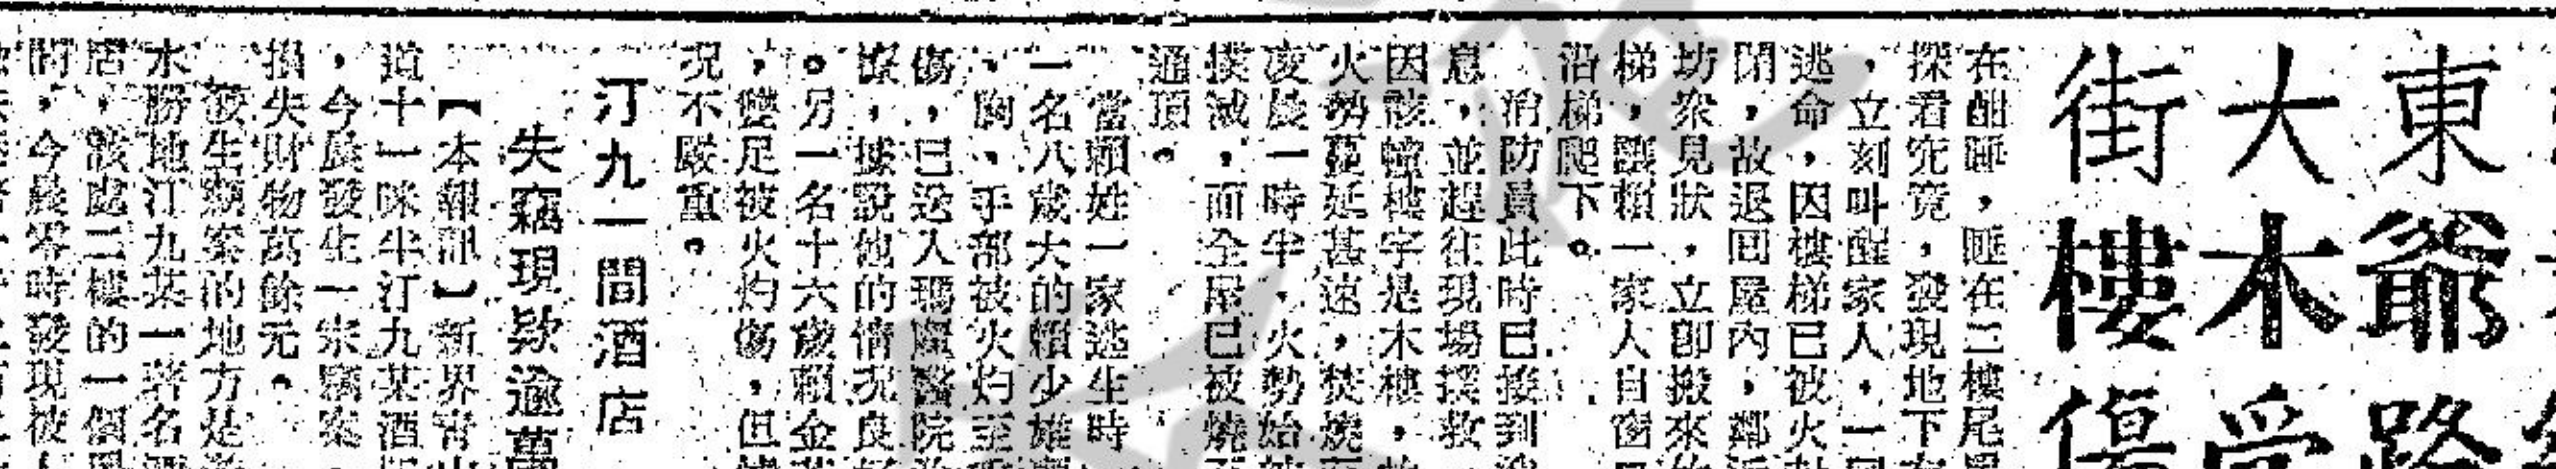 東爺路
大木受
街樓傷
在酣睡，睡在二樓尾
探看究竟，發現地下
，立刻叫醒家人，一
逃命，因樓梯已被火
閉，故退回屋內，鄰
坊衆見狀，立卽搬來
梯，讓賴一家人自窗
沿梯爬下。
消防員此時已接到
息，並趕往現場撲救
因該幢樓宇是木樓，
火勢蔓延甚速，焚燒
凌晨一時半，火勢始
撲滅，而全屋已被燒
通頂。
當賴姓一家逃生時
一名八歲大的賴少雄
、胸、手部被火灼至
傷，已送入瑪麗醫院
療，據說他的情況良
。另一名十六歲賴金
，雙足被火灼傷，但
況不嚴重。
汀九一間酒店
失竊現欵逾萬
【本報訊】新界靑山
道十一咪半汀九某酒
，今晨發生一宗竊案
損失財物萬餘元。
被生竊案的地方是
水勝地汀九某一著名
居，該處二樓的一個
間，今晨零時發現被